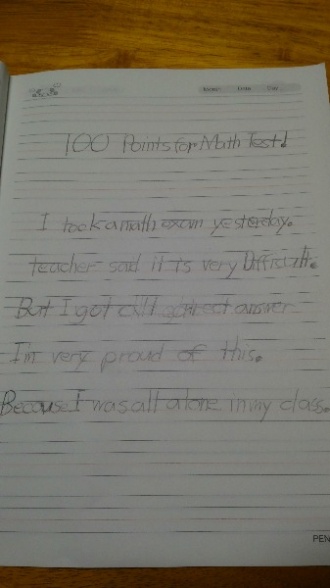 100 Points for Math Test!
I took a math exam yesterday.
teacher said it is very Difficult.
But I got all correct answer
I'm very proud of this.
Becaus I was all alone in my class.
PEN